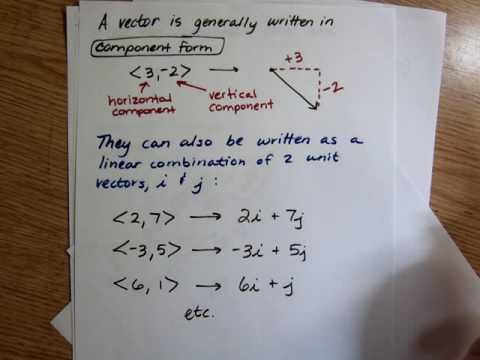 A vector is generally written in
component form
<3, -2> → +3
-2
horizontal component
vertical component
They can also be written as a
linear combination of 2 unit
vectors, i & j :
<2, 7> → 2i + 7j
<-3, 5> → -3i + 5j
<6, 1> → 6i + j
etc.